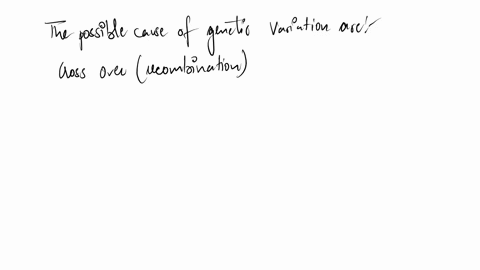 The possible cause of genetic variation are:-
Cross over (recombination)